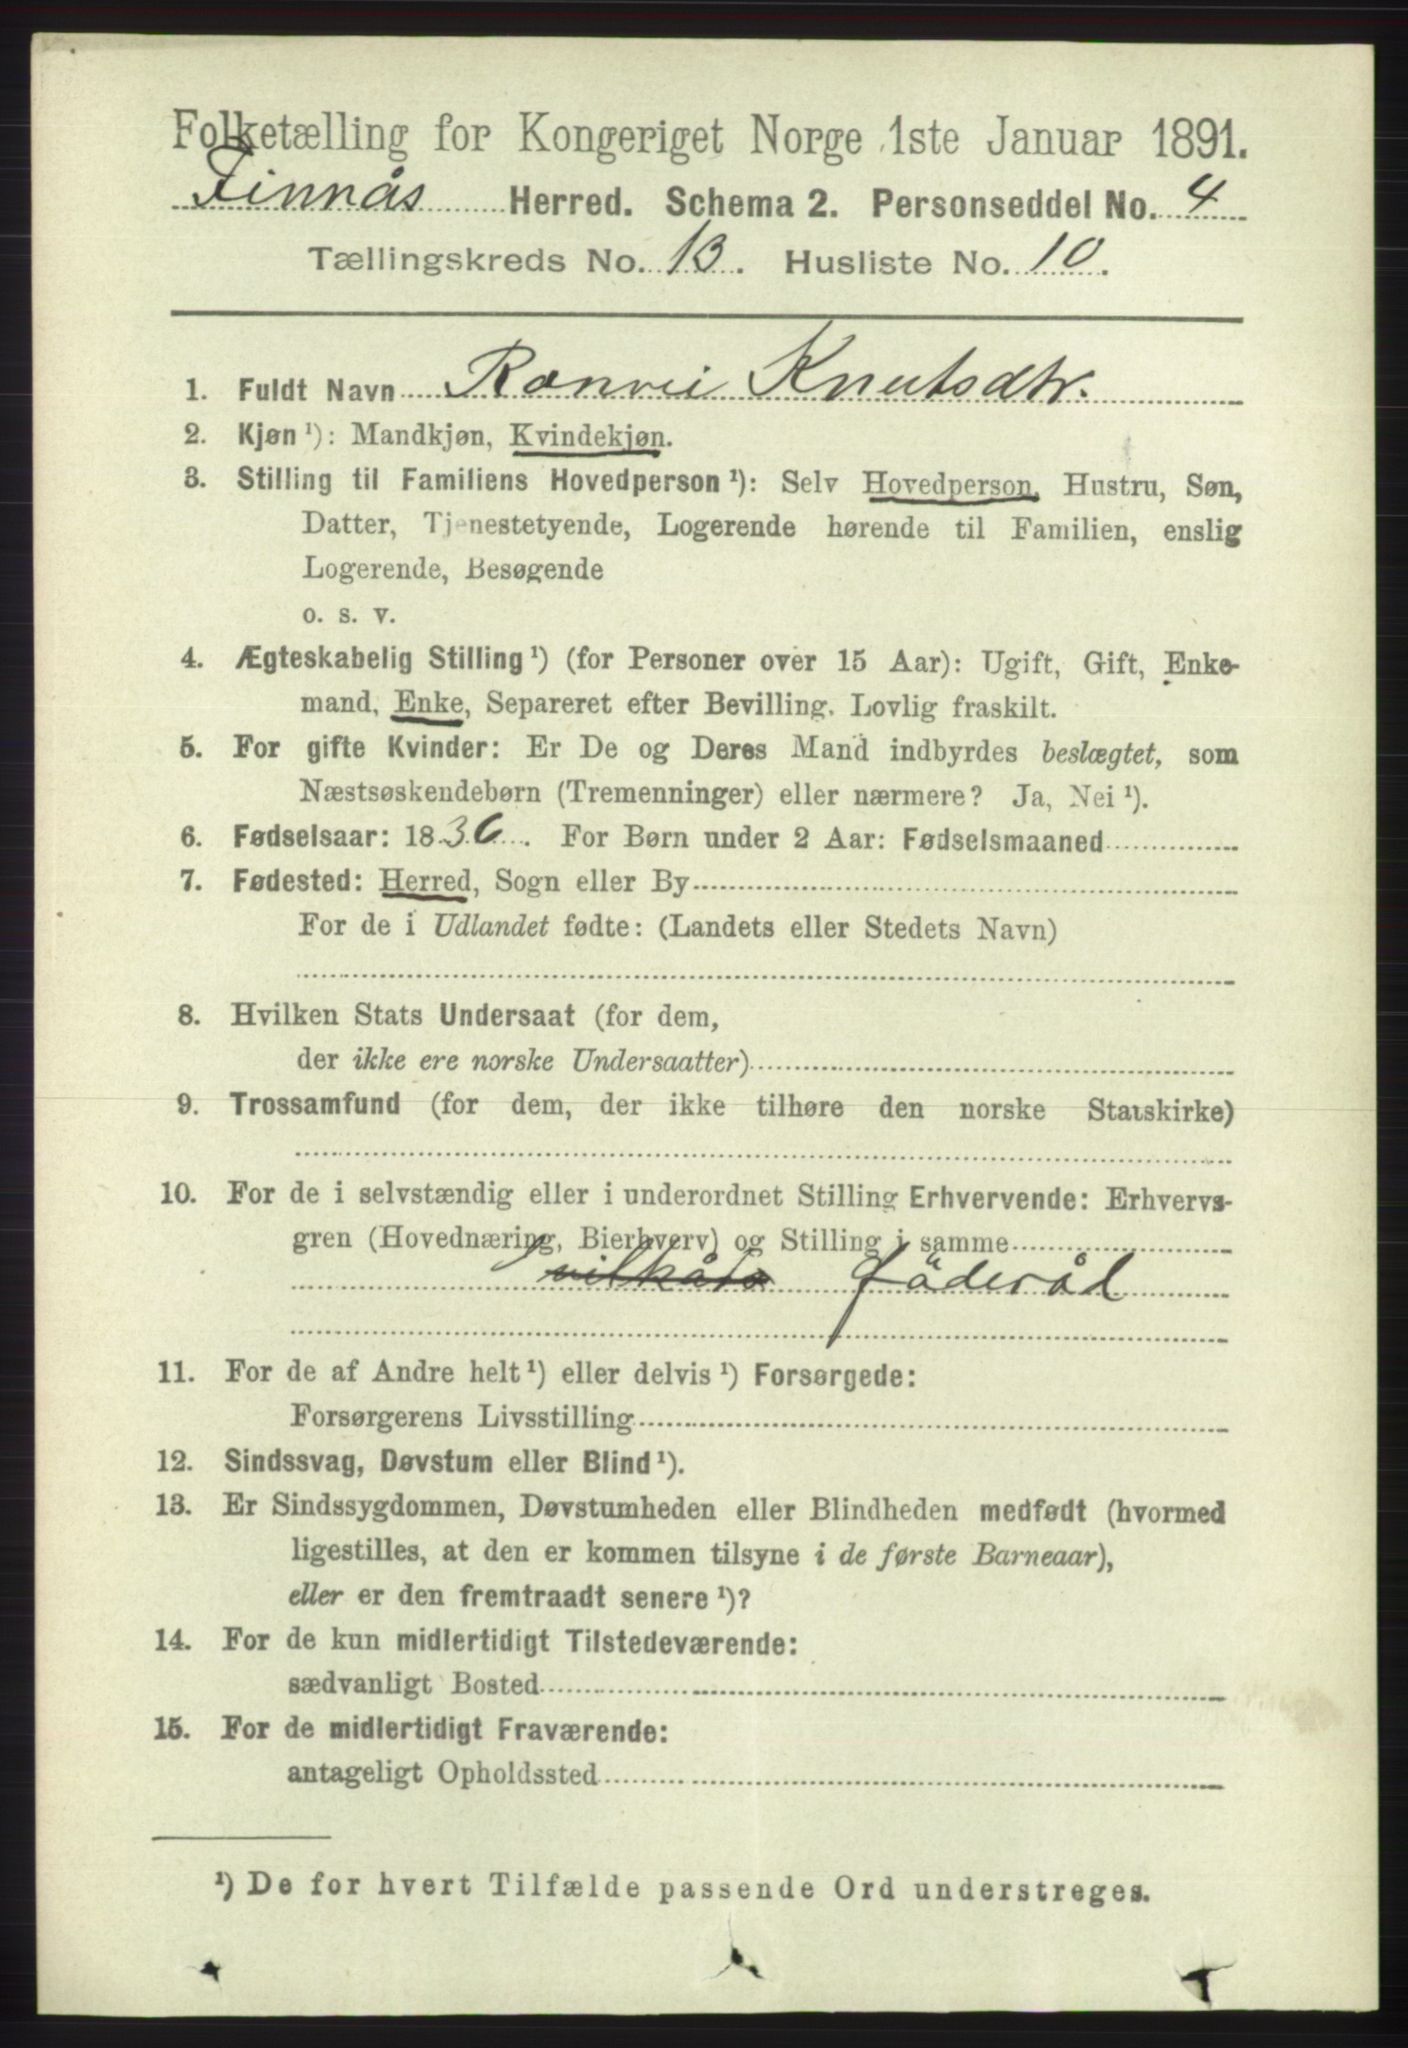 Folketælling for Kongeriget Norge 1ste Januar 1891.
Finnås Herred. Schema 2. Personseddel No. 4
Tællingskreds No. 13. Husliste No. 10.
1. Fuldt Navn Ranvei Knutsdtr.
2. Kjøn ¹): Mandkjøn, Kvindekjøn.
3. Stilling til Familiens Hovedperson ¹): Selv Hovedperson, Hustru, Søn,
Datter, Tjenestetyende, Logerende hørende til Familien, enslig
Logerende, Besøgende
o. s. v.
4. Ægteskabelig Stilling ¹) (for Personer over 15 Aar): Ugift, Gift, Enke-
mand, Enke, Separeret efter Bevilling. Lovlig fraskilt.
5. For gifte Kvinder: Er De og Deres Mand indbyrdes beslægtet, som
Næstsøskendebørn (Tremenninger) eller nærmere? Ja, Nei ¹).
6. Fødselsaar: 1836. For Børn under 2 Aar: Fødselsmaaned
7. Fødested: Herred, Sogn eller By
For de i Udlandet fødte: (Landets eller Stedets Navn)
8. Hvilken Stats Undersaat (for dem,
der ikke ere norske Undersaatter)
9. Trossamfund (for dem, der ikke tilhøre den norske Statskirke)
10. For de i selvstændig eller i underordnet Stilling Erhvervende: Erhvervs-
gren (Hovednæring, Bierhverv) og Stilling i samme
föderåd
11. For de af Andre helt ¹) eller delvis ¹) Forsørgede:
Forsørgerens Livsstilling
12. Sindssvag, Døvstum eller Blind ¹).
13. Er Sindssygdommen, Døvstumheden eller Blindheden medfødt (hvormed
ligestilles, at den er kommen tilsyne i de første Barneaar),
eller er den fremtraadt senere ¹)?
14. For de kun midlertidigt Tilstedeværende:
sædvanligt Bosted
15. For de midlertidigt Fraværende:
antageligt Opholdssted
¹) De for hvert Tilfælde passende Ord understreges.